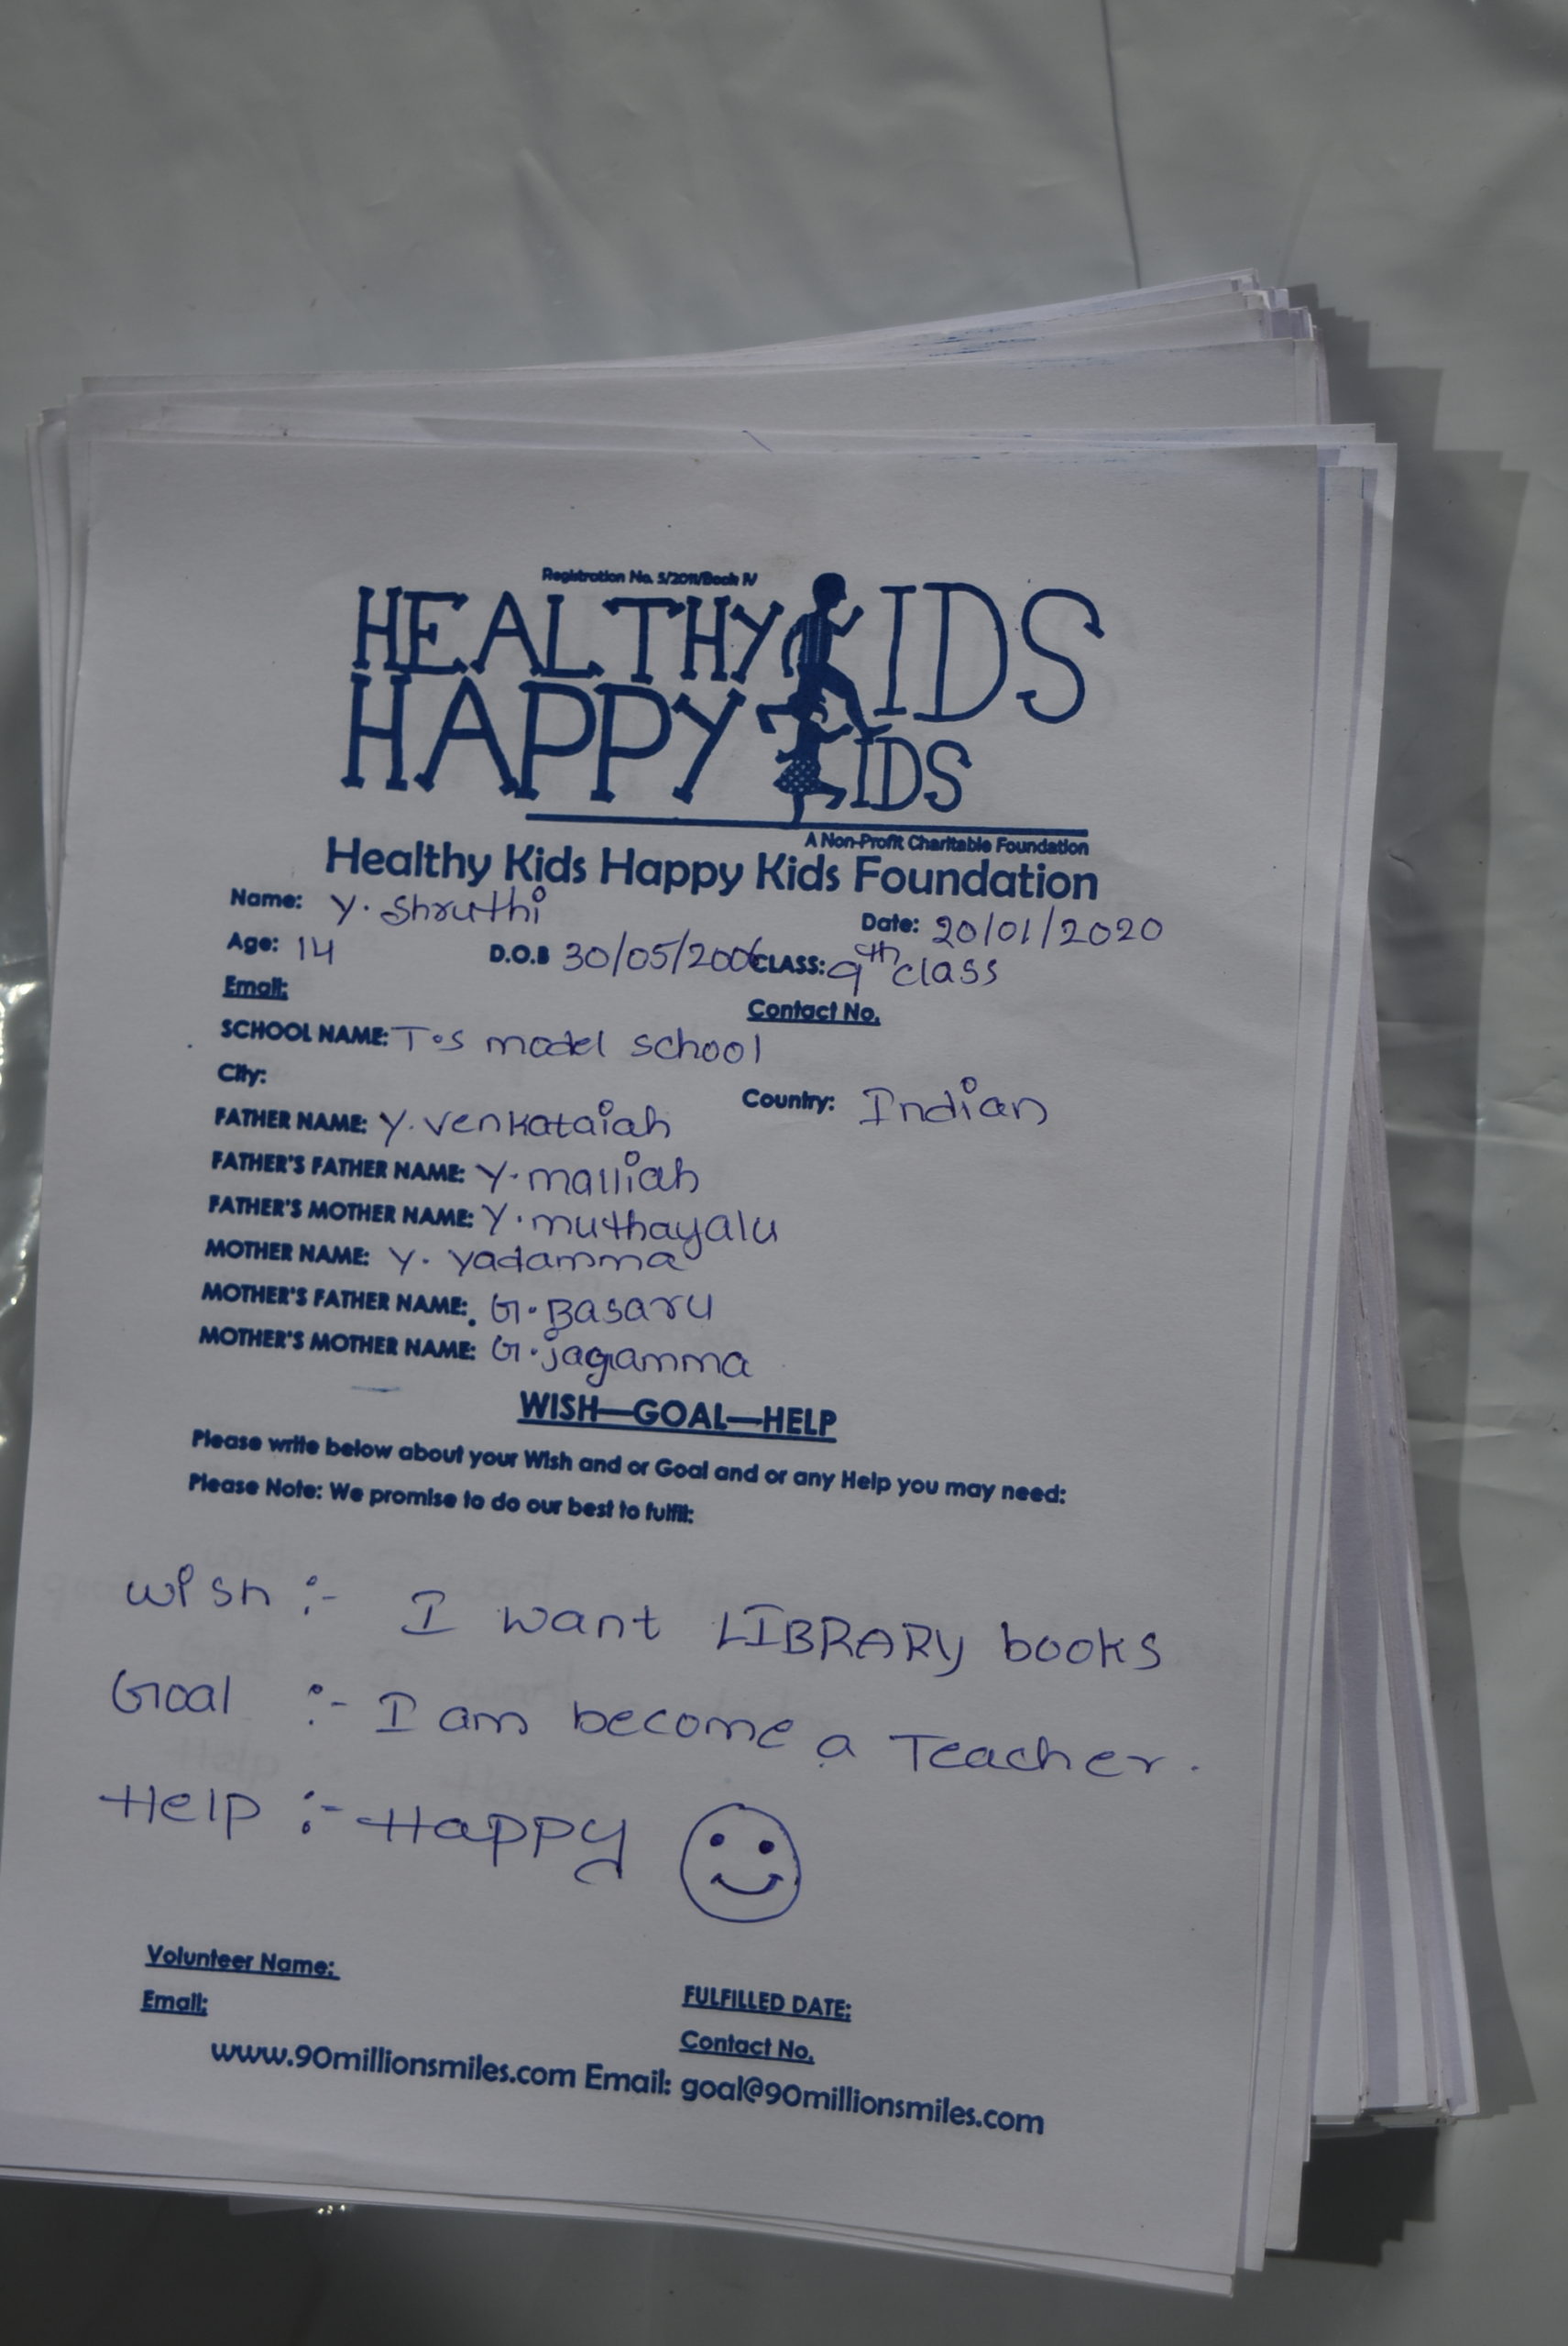 Registration No. 5/2011/Book IV
HEALTHY KIDS
HAPPY KIDS
A Non-Profit Charitable Foundation
Healthy Kids Happy Kids Foundation
Name: Y. Shruthi Date: 20/01/2020
Age: 14 D.O.B 30/05/2006 CLASS: 9th class
Email: Contact No.
SCHOOL NAME: T.S model school
City: Country: Indian
FATHER NAME: Y. Venkataiah
FATHER'S FATHER NAME: Y. malliah
FATHER'S MOTHER NAME: Y. muthayalu
MOTHER NAME: Y. Yadamma
MOTHER'S FATHER NAME: G. Basaru
MOTHER'S MOTHER NAME: G. jagamma
WISH—GOAL—HELP
Please write below about your Wish and or Goal and or any Help you may need:
Please Note: We promise to do our best to fulfil:
wish :- I want LIBRARY books
Goal :- I am become a Teacher.
Help :- Happy
Volunteer Name: FULFILLED DATE:
Email: Contact No.
www.90millionsmiles.com Email: goal@90millionsmiles.com